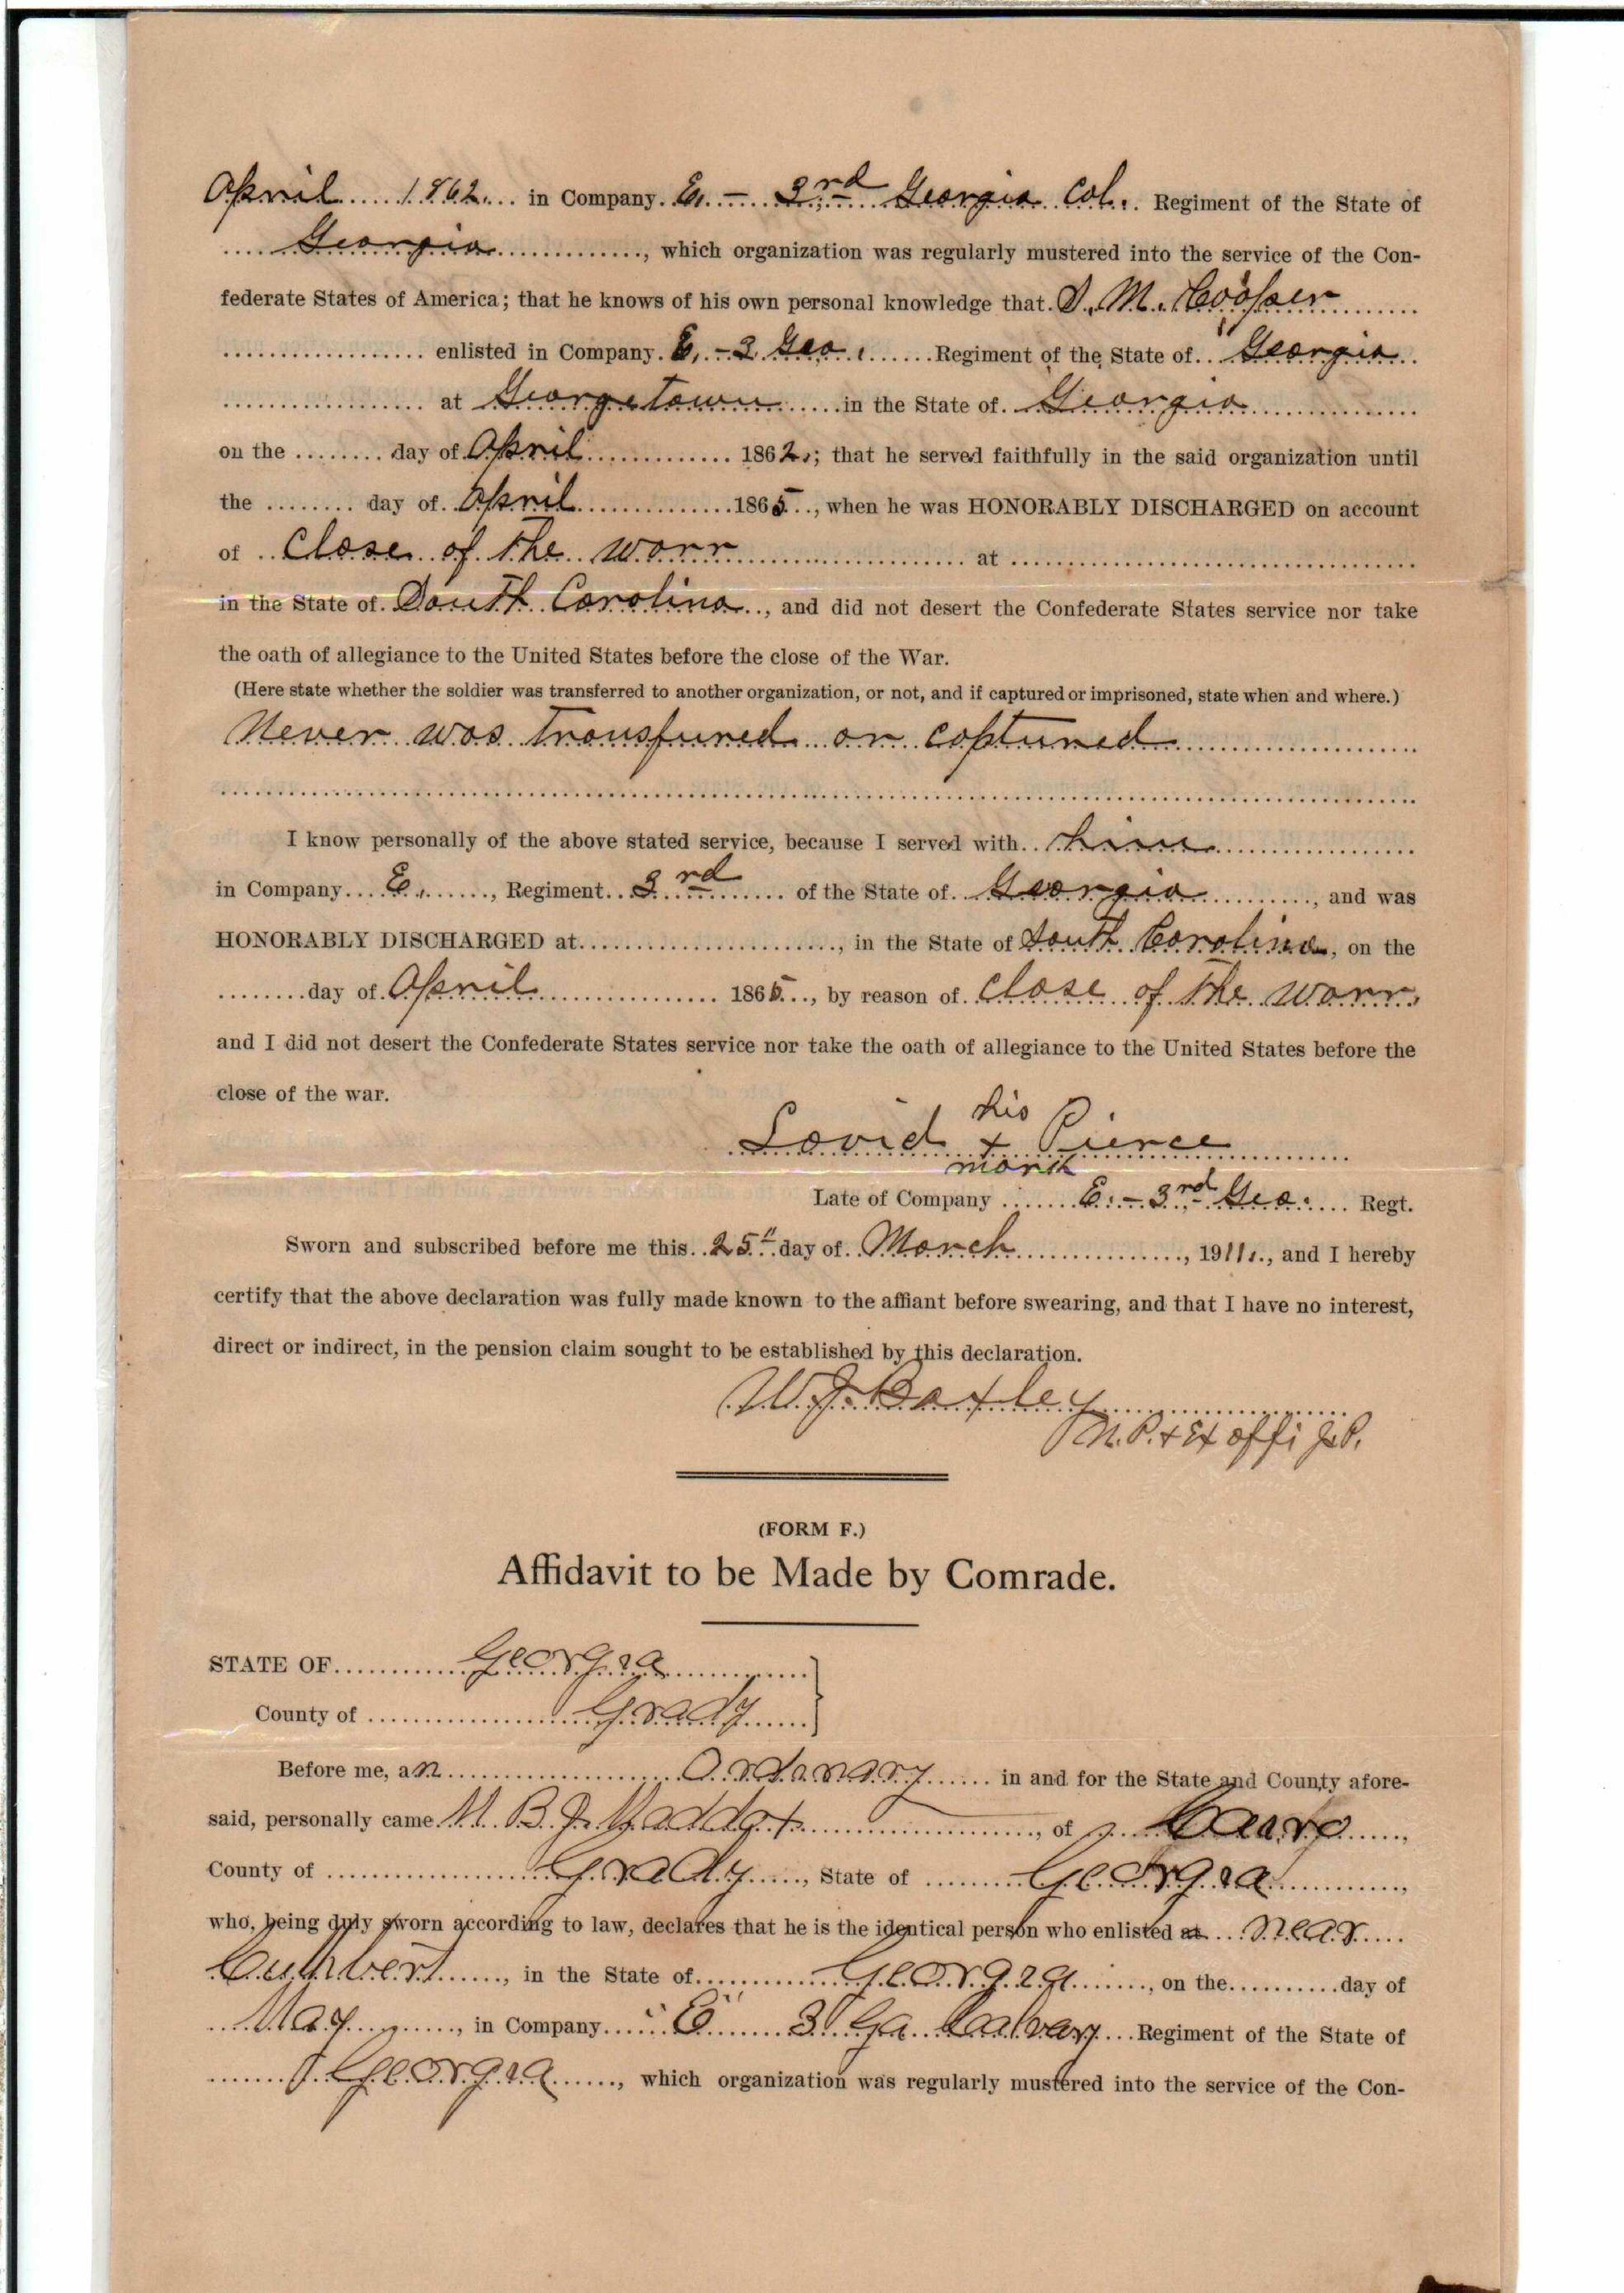 April 1862. in Company E. – 3rd Georgia Cal. Regiment of the State of
Georgia, which organization was regularly mustered into the service of the Con-
federate States of America; that he knows of his own personal knowledge that M. Cooper
enlisted in Company E. – 3 Geo. Regiment of the State of Georgia
at Georgetown in the State of Georgia
on the day of April 1862.; that he served faithfully in the said organization until
the day of April 1865, when he was HONORABLY DISCHARGED on account
of Close of the warr at
in the State of South Carolina, and did not desert the Confederate States service nor take
the oath of allegiance to the United States before the close of the War.
(Here state whether the soldier was transferred to another organization, or not, and if captured or imprisoned, state when and where.)
Never was transfured or captured
I know personally of the above stated service, because I served with him
in Company E., Regiment 3rd of the State of Georgia, and was
HONORABLY DISCHARGED at, in the State of South Carolina, on the
day of April 1865, by reason of Close of the warr,
and I did not desert the Confederate States service nor take the oath of allegiance to the United States before the
close of the war.
his
Lovid x Pierce
mark
Late of Company E. – 3rd Geo. Regt.
Sworn and subscribed before me this 25" day of March, 1911., and I hereby
certify that the above declaration was fully made known to the affiant before swearing, and that I have no interest,
direct or indirect, in the pension claim sought to be established by this declaration.
W. J. Baxley
N.P. & Ex offi J.P.
(FORM F.)
Affidavit to be Made by Comrade.
STATE OF Georgia
County of Grady
Before me, an Ordinary in and for the State and County afore-
said, personally came B. J. Maddox, of Cairo,
County of Grady, State of Georgia,
who, being duly sworn according to law, declares that he is the identical person who enlisted at near
Cuthbert, in the State of Georgia, on the day of
May, in Company "E" 3 Ga Calvary Regiment of the State of
Georgia, which organization was regularly mustered into the service of the Con-